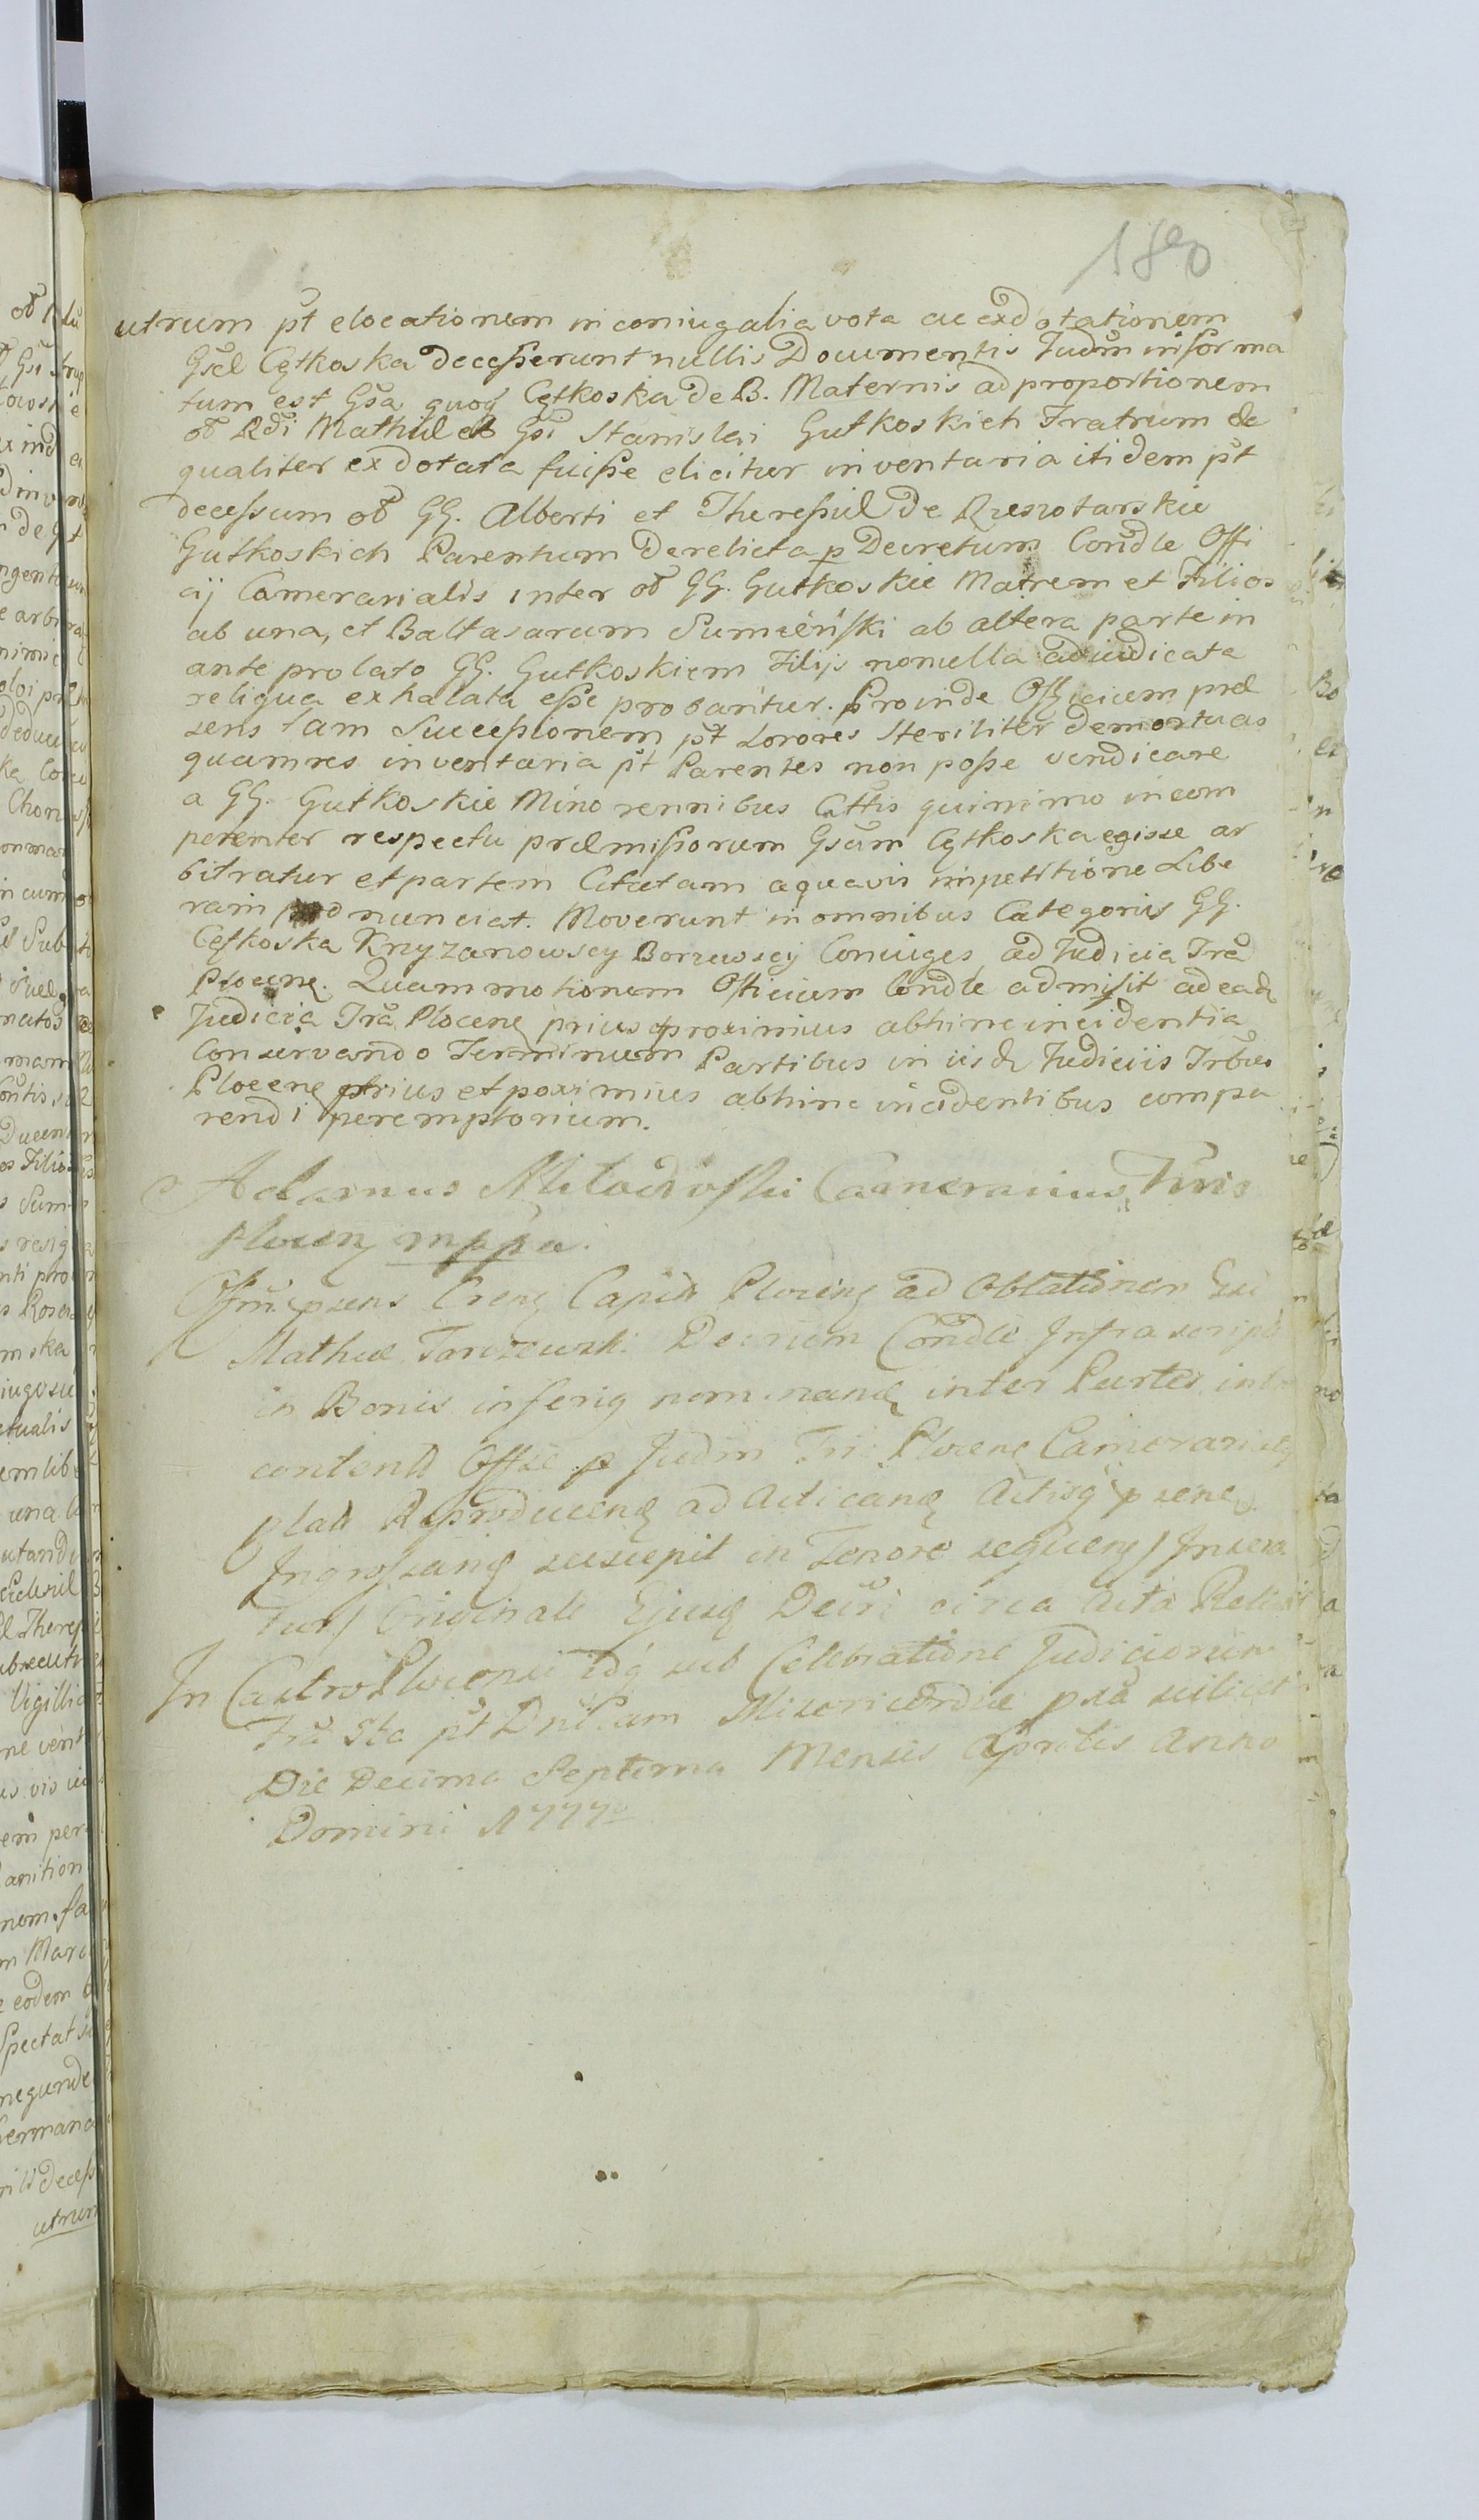 180
utrum pt elocationem in coniugalia vota ac exdotationem
Gsæ Cętkoska decesserunt nullis Documentis Judm informa
tum est Gsa quoq Cętkoska de B. Maternis ad proportionem
ob Rdi Mathiæ et Gsi Stanislai Gutkoskich Fratrum æ
qualiter exdotata fuisse elicitur inventaria itidem pt
decessum ob GG. Alberti et Theressiæ de Rzeszotarskie
Gutkoskich Parentum derelicta p Decretum Condle Offi
cij Camerarialis inter ob GG. Gutkoskie Matrem et Filios
ab una, et Baltasarum Sumiński ab altera parte in
ante prolato GG. Gutkoskiem Filijs nonnulla adiudicata
reliqua exhalata esse probantur. Proinde Officium præ
sens tam Successionem pt Sorores steriliter demortuas
quam res inventaria pt Parentes non posse vendicare
a GG. Gutkoskie Minorennibus Cttis quinimo incom
petenter respectu præmissorum Gsam Cętkoska egisse ar
bitratur et partem Citatam a quavis impetitione Libe
ram pronunciat. Moverunt in omnibus Categoriis GG.
Cętkoska Knyzanowscy Borzewscy Coniuges ad Judicia Tra
Plocen. Quam motionem Officium Condle admisit ad ead
Judicia Tra Plocen prius et proximius abhinc incidentia
Conservando Terminum Partibus in iisd Judiciis Trbus
Plocen prius et poximius abhinc incidentibus compa
rendi peremptorium.
Adamus Miłodroski Camerarius Tris
Plocen mppa.
Offm psens Crene Capit Plocens ad Oblationem Gsi
Mathiæ Tarczewski Decrum Condle Infrascript
in Bonis inferig nominand inter Partes in
contenta Offse p Judm Tri Plocene Camerariale
plat Reproducend ad Acticand Actisq psene
Ingrossand suscepit in Tenore sequens Insera
tur) Originale Ejusd Decri circa Acta Relict
In Castro Plocensi idq sub Celebratione Judiciorum
Tra Sta pt Dnicam Misericordiæ pxa scilicet
Die Decima Septima Mensis Aprilis Anno
Domini 1777o